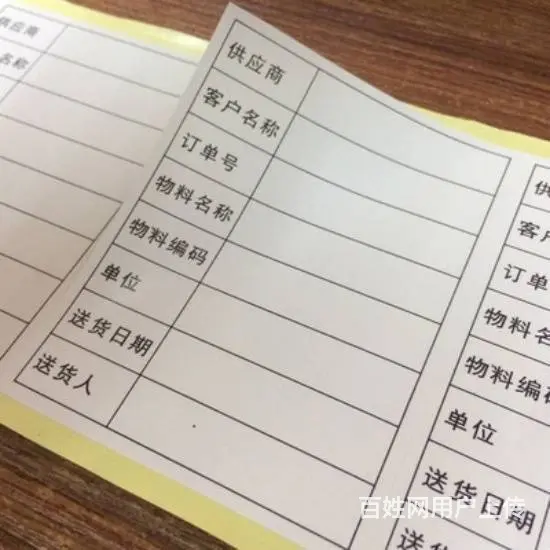 供应商
名称
供应商
客户名称
订单号
物料名称
物料编码
单位
送货日期
送货人
供
客户
订单
物料名
物料编码
单位
送货日期
送货人
百姓网用户上传